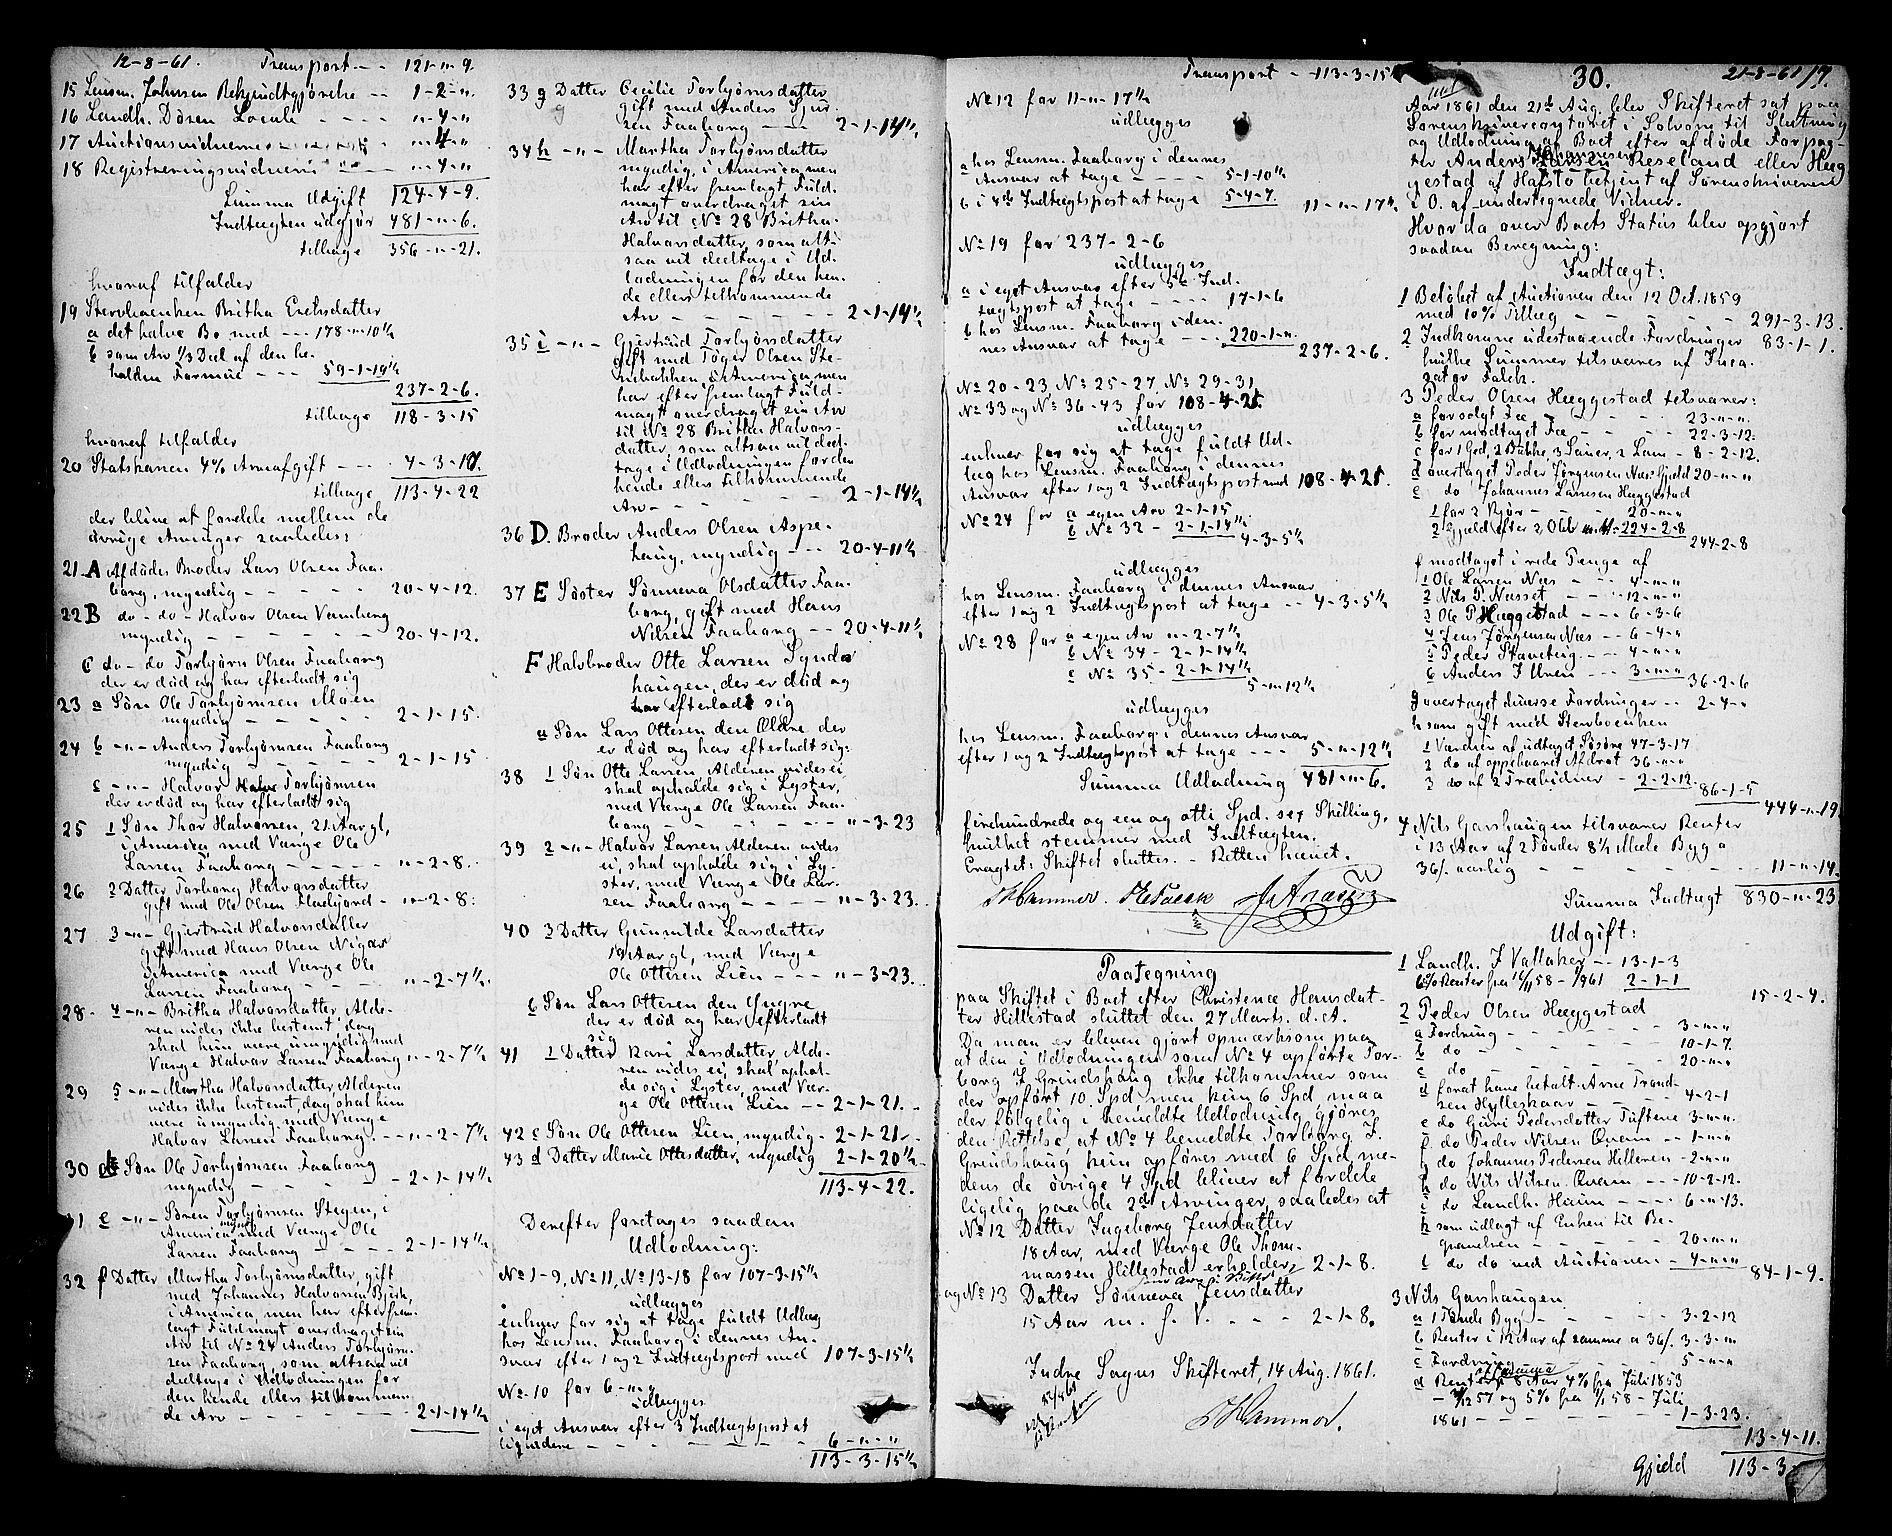 12-8-61. Transport -- 121-"-9.
15 Lensm. Johnsen Bekjendtgjørelse -- 1-2-".
16 Landh. Dösen Locale ---- "-4-"
17 Auctionsvidnerne "-4-"
18 Registreringsvidnerne "-4-"
Summa Udgift 124-4-9.
Indtægten udgjør 481-"-6.
tilbage 356-"-21.
hvoraf tilfalder
19 Stervboenken Britha Erichsdatter
a det halve Bo med --- 178-"-10½
b som Arv ⅓ Deel af den be-
holdne Formue --- 59-1-19½
237-2-6.
tilbage 118-3-15
hvoraf tilfalder
20 Statskassen 4% Arveafgift --- 4-3-17.
tilbage 113-4-22
der blive at fordele mellem de
övrige Arvinger saaledes:
21 A Afdödes Broder Lars Olsen Faa-
borg, myndig ----- 20-4-12.
22 B do - do - Halvor Olsen
myndig ------ 20-4-12.
C do - do Torbjørn Olsen Faaborg
der er död og har efterladt sig
23 a Sön Ole Torbjørnsen Moen
myndig ----- 2-1-15.
24 b -"- Anders Torbjørnsen Faaborg
myndig ----- 2-1-15
c -"- Halvor Torbjörnsen
der er död og har efterladt sig
25 1 Sön Thor Halvorsen, 21 Aar gl,
i America med Værge Ole
Larsen Faaborg ---- "-2-8.
26 2 Datter Torborg Halvorsdatter
gift med Ole Olsen - "-2-8.
27 3 -"- Gjertrud Halvorsdatter
gift med Hans Olsen Nigar
i America med Værge Ole
Larsen Faaborg ---- "-2-7½.
28 4 -"- Britha Halvorsdatter, Alde-
ren vides ikke bestemt, dog
skal hun være umyndig med
Værge Halvor Larsen Faaborg "-2-7½
29 5 -"- Martha Halvorsdatter, Alderen
vides ikke bestemt, dog skal hun
være umyndig med Værge
Halvor Larsen Faaborg -- "-2-7½
30 d Sön Ole Torbjørnsen Faaborg
myndig ---- 2-1-14½
31 e -"- Sören Torbjørnsen Stegen, i
America med Værge Ole
Larsen Faaborg ---- 2-1-14½
32 f Datter Martha Torbjørnsdatter, gift
med Johannes Halvorsen Björk,
i America, men har efter frem-
lagt Fuldmagt overdraget sin
Arv til No 24 Anders Torbjørn-
sen Faaborg, som altsaa vil
deeltage i Udlodningen for
den hende ellers tilkommen-
de Arv ------ 2-1-14½
33 g Datter Cecilie Torbjørnsdatter
gift med Anders
sen Faaborg --- 2-1-14½
34 h -"- Martha Torbjørnsdatter
myndig, i America, men
har efter fremlagt Fuld-
magt overdraget sin
Arv til No 28 Britha
Halvorsdatter, som alt-
saa vil deeltage i Ud-
lodningen for den hen-
de ellers tilkommende
Arv ------ 2-1-14½
35 i -"- Gjertrud Torbjörnsdatter
gift med Töger Olsen Ste-
nebakken, i America, men
har efter fremlagt Fuld-
magt overdraget sin Arv
til No 28 Britha Halvors-
datter, som altsaa vil deel-
tage i Udlodningen for den
hende ellers tilkommende
Arv --- 2-1-14½
36 D. Broder Anders Olsen Aspe-
haug, myndig --- 20-4-11½
37 E Söster Sönneva Olsdatter Faa-
borg, gift med Hans
Nilsen Faaborg -- 20-4-11½
F Halvbroder Otte Larsen Synda
haugen, der er död og
har efterladt sig
a Sön Lars Ottesen den Eldre der
er död og har efterladt sig:
38 1 Sön Otte Larsen, Alderen vides ei,
skal opholde sig i Lyster,
med Værge Ole Larsen Faa-
borg ------ "-3-23
39 2 -"- Halvor Larsen Alderen vides
ei, skal opholde sig i Ly-
ster, med Værge Ole Lar-
sen Faaborg ---- "-3-23.
40 3 Datter Gunnilde Larsdatter
19 Aar gl, med Værge
Ole Ottesen Lien --- "-3-23.
b Sön Lars Ottesen den Yngre
der er död og har efterladt
sig
41 1 Datter Kari Larsdatter, Alde-
ren vides ei, skal ophol-
de sig i Lyster, med Vær-
ge Ole Ottesen Lien -- 2-1-21.
42 c Sön Ole Ottesen Lien, myndig - 2-1-21.
43 d Datter Marie Ottesdatter, myndig 2-1-20½
113-4-22.
Derefter foretoges saadan
Udlodning:
No 1-9, No 11, No 13-18 for 107-3-15½
udlægges
enhver for sig at tage fuldt Udlæg
hos Lensm. Faaborg i dennes An-
svar efter 1 og 2 Indtægtspost med 107-3-15½
No 10 for 6-"-"
udlægges
i eget Ansvar efter 3 Indtægtspost at
ligvidere ------ 6-"-"
113-3-15½
Transport - 113-3-15½
No 12 for 11-"-17½
udlægges
a hos Lensm. Faaborg i dennes
Ansvar at tage ---- 5-1-10½
b i 4de Indtægtspost at tage 5-4-7.
11-"-17½
No 19 for 237-2-6
udlægges
a i eget Ansvar efter 5te Ind-
tægtspost at tage ---- 17-1-6
b hos Lensm. Faaborg i den-
nes Ansvar at tage --- 220-1-".
237-2-6.
No 20-23, No 25-27, No 29-31,
No 33 og No 36-43 for 108-4-21
udlægges
enhver for sig at tage fuldt Ud-
læg hos Lensm. Faaborg i dennes
Ansvar efter 1 og 2 Indtægtspost med 108-4-21.
No 24 for a egen Arv 2-1-15.
b No 32 - 2-1-14½
4-3-5½
udlægges
hos Lensm. Faaborg i dennes Ansvar
efter 1 og 2 Indtægtspost at tage -- 4-3-5½
No 28 for a egen Arv "-2-7½
b No 34 - 2-1-14½
c No 35 - 2-1-14½
5-"-12½
udlægges
hos Lensm. Faaborg i dennes Ansvar
efter 1 og 2 Indtægtspost at tage --- 5-"-12½
Summa Udlodning 481-"-6.
firehundrede og een og otti Spd. sex Skilling,
hvilket stemmer med Indtægten.
Eragtet: Skiftet sluttes. - Retten hævet.
JKHammer.
Paategning
paa Skiftet i Boet efter Christence Hansdat-
ter Hillestad sluttet den 27 Marts. d. A.
Da man er bleven gjort opmærksom paa
at den i Udlodningen som No 4 opförte Tor-
borg J. Grindshaug ikke tilkommer som
der opfört 10 Spd, men kun 6 Spd, maa
der fölgelig i bemeldte Udlodning gjöres
den Rettelse, at No 4 bemeldte Torborg J.
Grindshaug kun opføres med 6 Spd me-
dens de övrige 4 Spd bliver at fordele
ligelig paa de 2de Arvinger, saaledes at
No 12 Datter Ingeborg Jensdatter
18 Aar, med Værge Ole Thom-
massen Hillestad erholder 2-1-8.
og No 13 Datter Sönneva Jensdatter
15 Aar m. f. V. ---- 2-1-8.
Indre Sogns Skifteret, 14 Aug. 1861.
JKHammer.
30. 21-8-61
Aar 1861 den 21de Aug. blev Skifteret sat paa
Sorenskrivercontoret i Solvorn til Slutning
og Udlodning af Boet efter afdöde Forpag-
ter Anders Johannesen Reseland eller Hæg
gestad af Hafslo betjent af Sorenskriveren
i O. af undertegnede Vidner.
Hvorda over Boets Status blev opgjort
saadan Beregning:
Indtægt:
1 Belöbet af Auctionen den 12 Oct. 1859
med 10% Tillæg ------ 291-3-13.
2 Indkomne udestaaende Fordringer 83-1-1.
hvilke Summer tilsvares af Inca-
sator Falck.
3 Peder Olsen Hæggestad tilsvarer:
a for solgt Fæ ---- 23-"-"
b for modtaget Fæ ---- 22-3-12.
c for 1 Gjed, 2 Bukke, 3 Sauer, 2 Lam - 8-2-12.
d overtaget Peder Jørgensen Næs Gjæld 20-"-"
e do Johannes Larsen Hæggestad
1 for 2 Kjör --- 20-"-"
2 Gjæld efter 2 Obl. 224-2-8
244-2-8
f modtaget i rede Penge af
1 Ole Larsen Næs --- 4-"-"
2 Nils P. Næsset --- 12-"-"
3 Ole P Hæggestad --- 6-3-6
4 Jens Jørgensen Næs -- 6-4-"
5 Peder --- 4-"-"
6 Anders --- 3-"-"
36-2-6
g overtaget diverse Fordringer -- 2-4-"
h som gift med Stervboenken
1 Værdien af udtaget Lösöre 47-3-17
2 do af oppebaaret Afdrot 36-"-"
3 do af 2 - 2-2-12.
86-1-5
444-"-19.
4 Nils Garshaugen tilsvarer Renter
i 13 Aar af 2 Tönder 8½ Mæle Byg a
36/. aarlig ------ 11-"-14.
Summa Indtægt 830-"-23
Udgift:
1 Landh. J Vallaker -- 13-1-3
6% Renter fra 16/11 58 - 1/9 61 2-1-1
15-2-4.
2 Peder Olsen Hæggestad
a Fordring ----- 3-"-"
b do ----- 10-1-7.
c do ----- 20-"-"
d forat have betalt Arne Trond-
sen Hylleskaar ---- 4-2-1
e do Guri Pedersdatter Tuftene 3-"-".
f do Peder Nilsen Qvam -- 1-"-"
g do Johannes Pedersen Hilleren - 2-"-"
h do Nils Nilsen Qvam --- 10-2-12.
i do Landh. Heim ---- 6-"-13.
k som udlagt af Enken til Be-
gravelsen ----- 20-"-"
l do do ved Auctionen - 4-"-"
84-1-9.
3 Nils Garshaugen
a 1 Tönde Byg ---- 3-2-12
b Renter i 12 Aar af samme a 36/. 3-3-"
c Fordring ---- 5-"-"
d Renter af samme 8 Aar 4% fra Juli 1853
- 57 og 5% fra 1/1 58 - Juli
1861 ------ 1-3-23.
13-4-11.
Gjæld 113-3-